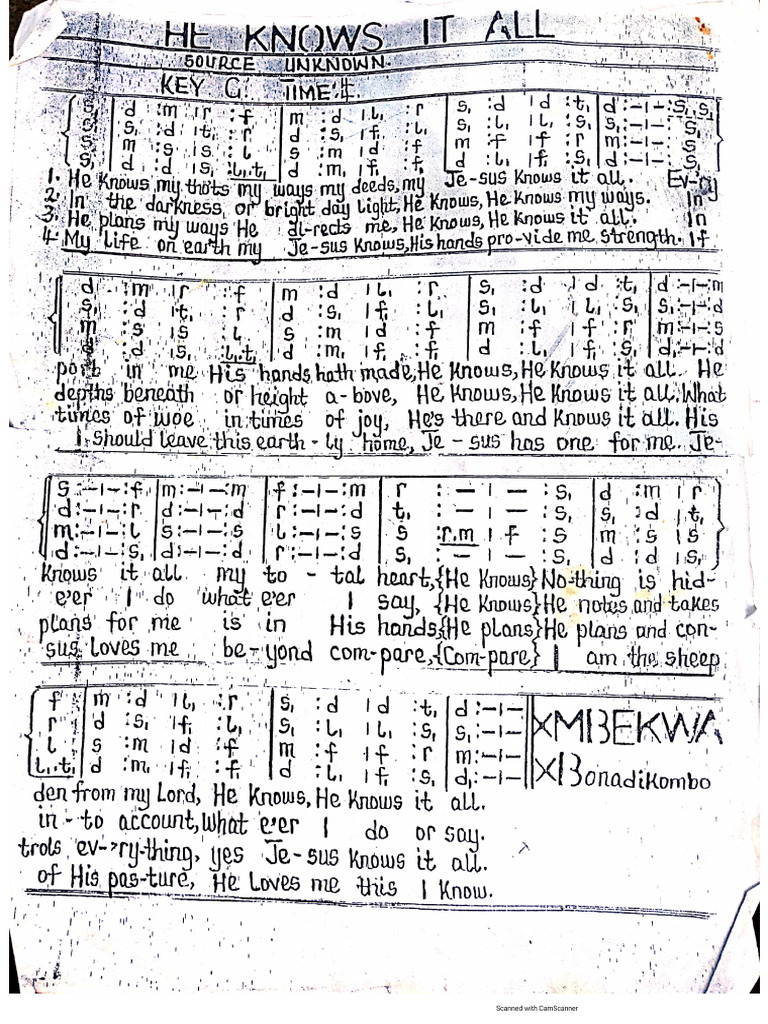 HE KNOWS IT ALL
SOURCE UNKNOWN
KEY G. TIME 4
s, | d :m |r :f | m :d |l, :r | s, :d |d :t, | d :-|- :s, s,
s, | s, :d |t, :r | d :s, |f, :l, | s, :l, |l, :s, | s, :-|- :s,
s | m :s |s :l | s :m |d :f | m :f |f :r | m :-|- :s,
s, | d :d |s, :l, t, | d :m, |f, :f, | d :l, |f, :s, | d :-|- :s,
1. He Knows my thots my ways my deeds, my Je-sus Knows it all. Ev-'ry
2. In the darkness, or bright day light, He Knows, He Knows my ways. In
3. He plans my ways He di-rects me, He Knows, He Knows it all. In
4. My life on earth my Je-sus Knows, His hands pro-vide me strength. If
d :m |r :f | m :d |l, :r | s, :d |d :t, | d :-|- :m
s, :d |t, :r | d :s, |f, :l, | s, :l, |l, :s, | s, :-|- :s
m :s |s :l | s :m |d :f | m :f |f :r | m :-|- :s
s, :d |s, :l, t, | d :m, |f, :f, | d :l, |f, :s, | d :-|- :d
port in me His hands hath made, He Knows, He Knows it all. He
depths beneath or height a-bove, He Knows, He Knows it all. What
times of woe in times of joy, He's there and Knows it all. His
I should leave this earth-ly home, Je-sus has one for me. Je-
s :-|- :f | m :-|- :m | f :-|- :m | r :-|- :s, | d :m |r
d :-|- :r | d :-|- :d | r :-|- :d | t, :-|- :s, | s, :d |t,
m :-|- :l | s :-|- :s | l :-|- :s | s :r.m |f :s | m :s |s
d :-|- :s, | d :-|- :d | r :-|- :d | s, :-|- :s | d :d |s,
Knows it all my to-tal heart, {He Knows} No-thing is hid-
e'er I do what e'er I say, {He Knows} He notes and takes
plans for me is in His hands {He plans} He plans and con-
sus Loves me be-yond com-pare, {Com-pare} I am the sheep
f | m :d |l, :r | s, :d |d :t, | d :-|- XMBEKWA
r | d :s, |f, :l, | s, :l, |l, :s, | s, :-|-
l | s :m |d :f | m :f |f :r | m :-|-
l, t, | d :m, |f, :f, | d :l, |f, :s, | d, :-|- XBonadiKombo
den from my Lord, He Knows, He Knows it all.
in-to account, What e'er I do or say.
trols ev-'ry-thing, yes Je-sus Knows it all.
of His pas-ture, He Loves me this I Know.
Scanned with CamScanner